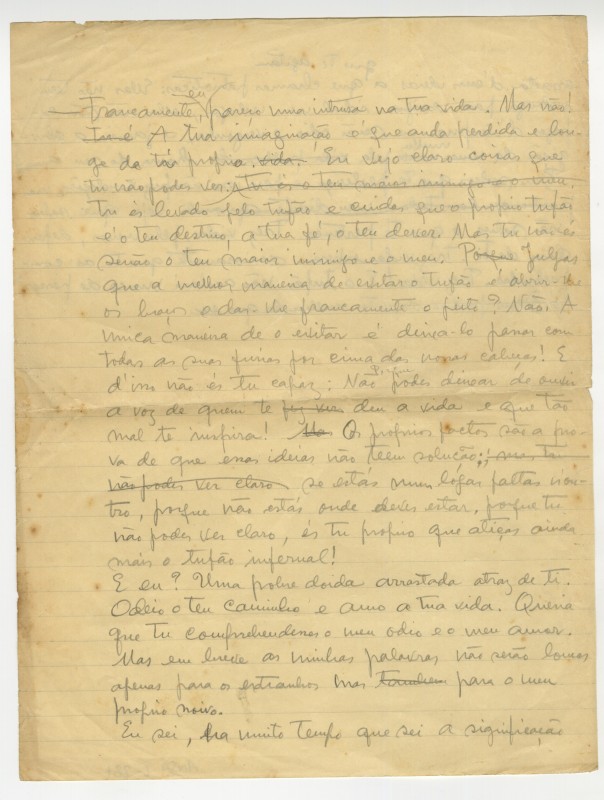 eu
— Francamente, pareço uma intrusa na tua vida. Mas não!
Isso é A tua imaginação é que anda perdida e lon-
ge da tua propria vida. Eu vejo claro coisas que
tu não podes ver: Tu és o teu maior inimigo e o meu.
Tu és levado pelo tufão e cuidas que o proprio tufão
é o teu destino, a tua fé, o teu dever. Mas tu não és
senão o teu maior inimigo e o meu. Julgas
que a melhor maneira de evitar o tufão é abrir-lhe
os braços e dar-lhe francamente o peito? Não! A
unica maneira de o evitar é deixa-lo passar com
todas as suas furias por cima das nossas cabeças! E
d'isso não és tu capaz: Não podes deixar de ouvir
a voz de quem te fez deu a vida e que tão
mal te inspira! Mas Os proprios factos são a pro-
va de que essas ideias não teem solução; mas tu
não podes ver claro se estás num lógar faltas nou-
tro, porque não estás onde deves estar, porque tu
não podes ver claro, és tu proprio que atiças ainda
mais o tufão infernal!
E eu? Uma pobre doida arrastada atraz de ti.
Odeio o teu caminho e amo a tua vida. Queria
que tu comprehendesses o meu odio e o meu amor.
Mas em breve as minhas palavras não serão loucas
apenas para os extranhos mas tambem para o meu
proprio noivo.
Eu sei, ha muito tempo que sei a significação